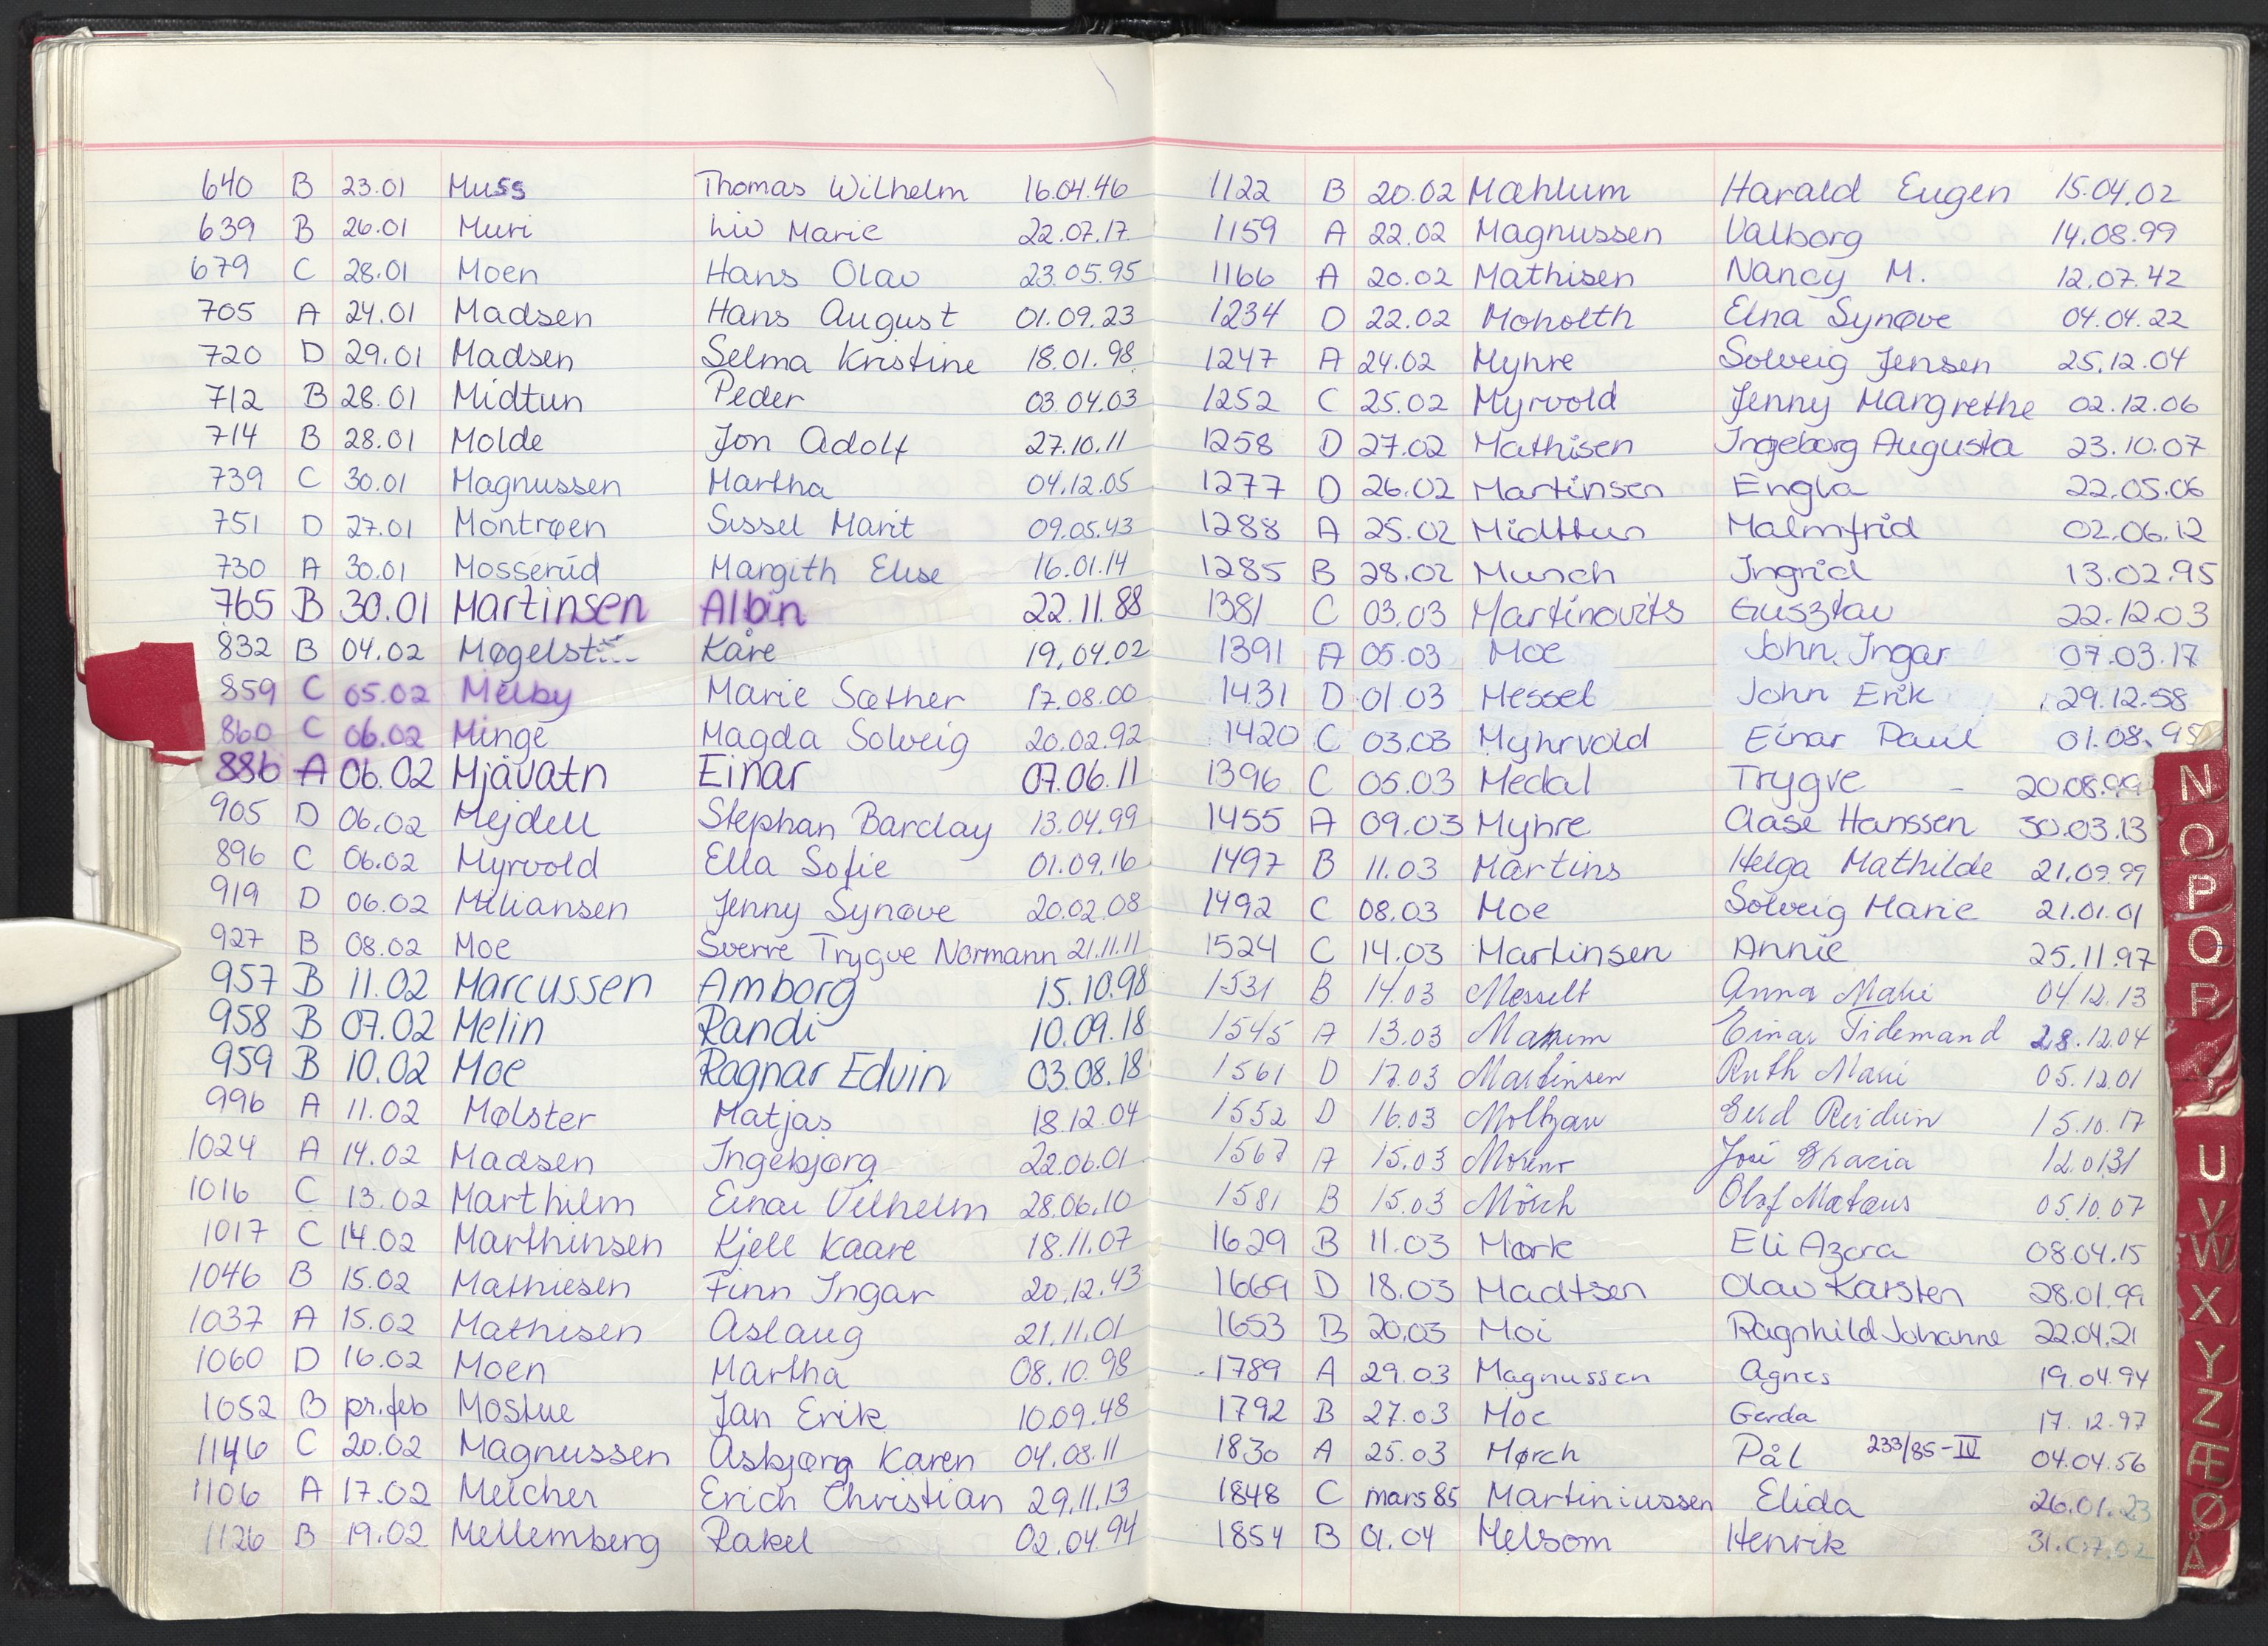 640 B 23.01 Muss Thomas Wilhelm 16.04.46
639 B 26.01 Muri Liv Marie 22.07.17
679 C 28.01 Moen Hans Olav 23.05.95
705 A 24.01 Madsen Hans August 01.09.23
720 D 29.01 Madsen Selma Kristine 18.01.98
712 B 28.01 Midtun Peder 03.04.03
714 B 28.01 Molde Jon Adolf 27.10.11
739 C 30.01 Magnussen Martha 04.12.05
751 D 27.01 Montrøen Sissel Marit 09.05.43
730 A 30.01 Mosserud Margith Elise 16.01.14
765 B 30.01 Martinsen Albin 22.11.88
832 B 04.02 Møgelst... Kåre 19.04.02
859 C 05.02 Melby Marie Sæther 17.08.00
860 C 06.02 Minge Magda Solveig 20.02.92
886 A 06.02 Mjåvatn Einar 07.06.11
905 D 06.02 Mejdell Stephan Barclay 13.04.99
896 C 06.02 Myrvold Ella Sofie 01.09.16
919 D 06.02 Miliansen Jenny Synøve 20.02.08
927 B 08.02 Moe Sverre Trygve Normann 21.11.11
957 B 11.02 Marcussen Amborg 15.10.98
958 B 07.02 Melin Randi 10.09.18
959 B 10.02 Moe Ragnar Edvin 03.08.18
996 A 11.02 Mølster Matjas 18.12.04
1024 A 14.02 Madsen Ingebjørg 22.06.01
1016 C 13.02 Marthilm Einar Vilhelm 28.06.10
1017 C 14.02 Marthinsen Kjell Kaare 18.11.07
1046 B 15.02 Mathiesen Finn Ingar 20.12.43
1037 A 15.02 Mathisen Aslaug 21.11.01
1060 D 16.02 Moen Martha 08.10.98
1052 B pr.feb Mostue Jan Erik 10.09.48
1146 C 20.02 Magnussen Asbjørg Karen 04.08.11
1106 A 17.02 Melcher Erich Christian 29.11.13
1126 B 19.02 Mellemberg Rakel 02.04.94
1122 B 20.02 Mæhlum Harald Eugen 15.04.02
1159 A 22.02 Magnussen Valborg 14.08.99
1166 A 20.02 Mathisen Nancy M. 12.07.42
1234 D 22.02 Moholth Elna Synøve 04.04.22
1247 A 24.02 Myhre Solveig Jensen 25.12.04
1252 C 25.02 Myrvold Jenny Margrethe 02.12.06
1258 D 27.02 Mathisen Ingeborg Augusta 23.10.07
1277 D 26.02 Martinsen Engla 22.05.06
1288 A 25.02 Midttun Malmfrid 02.06.12
1285 B 28.02 Munch Ingrid 13.02.95
1381 C 03.03 Martinovits Gusztav 22.12.03
1391 A 05.03 Moe John Ingar 07.03.17
1431 D 01.03 Messel John Erik 29.12.58
1420 C 03.03 Myhrvold Einar Paul 01.08.95
1396 C 05.03 Medal Trygve - 20.08.99
1455 A 09.03 Myhre Aase Hanssen 30.03.13
1497 B 11.03 Martins Helga Mathilde 21.09.99
1492 C 08.03 Moe Solveig Marie 21.01.01
1524 C 14.03 Martinsen Annie 25.11.97
1531 B 14.03 Messelt Anna Marie 04.12.13
1545 A 13.03 Einar Tidemand 28.12.04
1561 D 17.03 Martinsen Ruth Marie 05.12.01
1552 D 16.03 Moltzau Gerd Reidun 15.10.17
1567 A 15.03 Moreno José 12.01.31
1581 B 15.03 Mörch Olaf Mateus 05.10.07
1629 B 11.03 Mørk Eli Azora 08.04.15
1669 D 18.03 Madtsen Olav Karsten 28.01.99
1653 B 20.03 Moi Ragnhild Johanne 22.04.21
1789 A 29.03 Magnussen Agnes 19.04.94
1792 B 27.03 Moe Gerda 17.12.97
1830 A 25.03 Mørch Pål 233/85-IV 04.04.56
1848 C mars 85 Martiniussen Elida 26.01.23
1854 B 01.04 Melsom Henrik 31.07.02
N
O
P
Q
R
U
V
W
X
Y
Z
Æ
Ø
Å